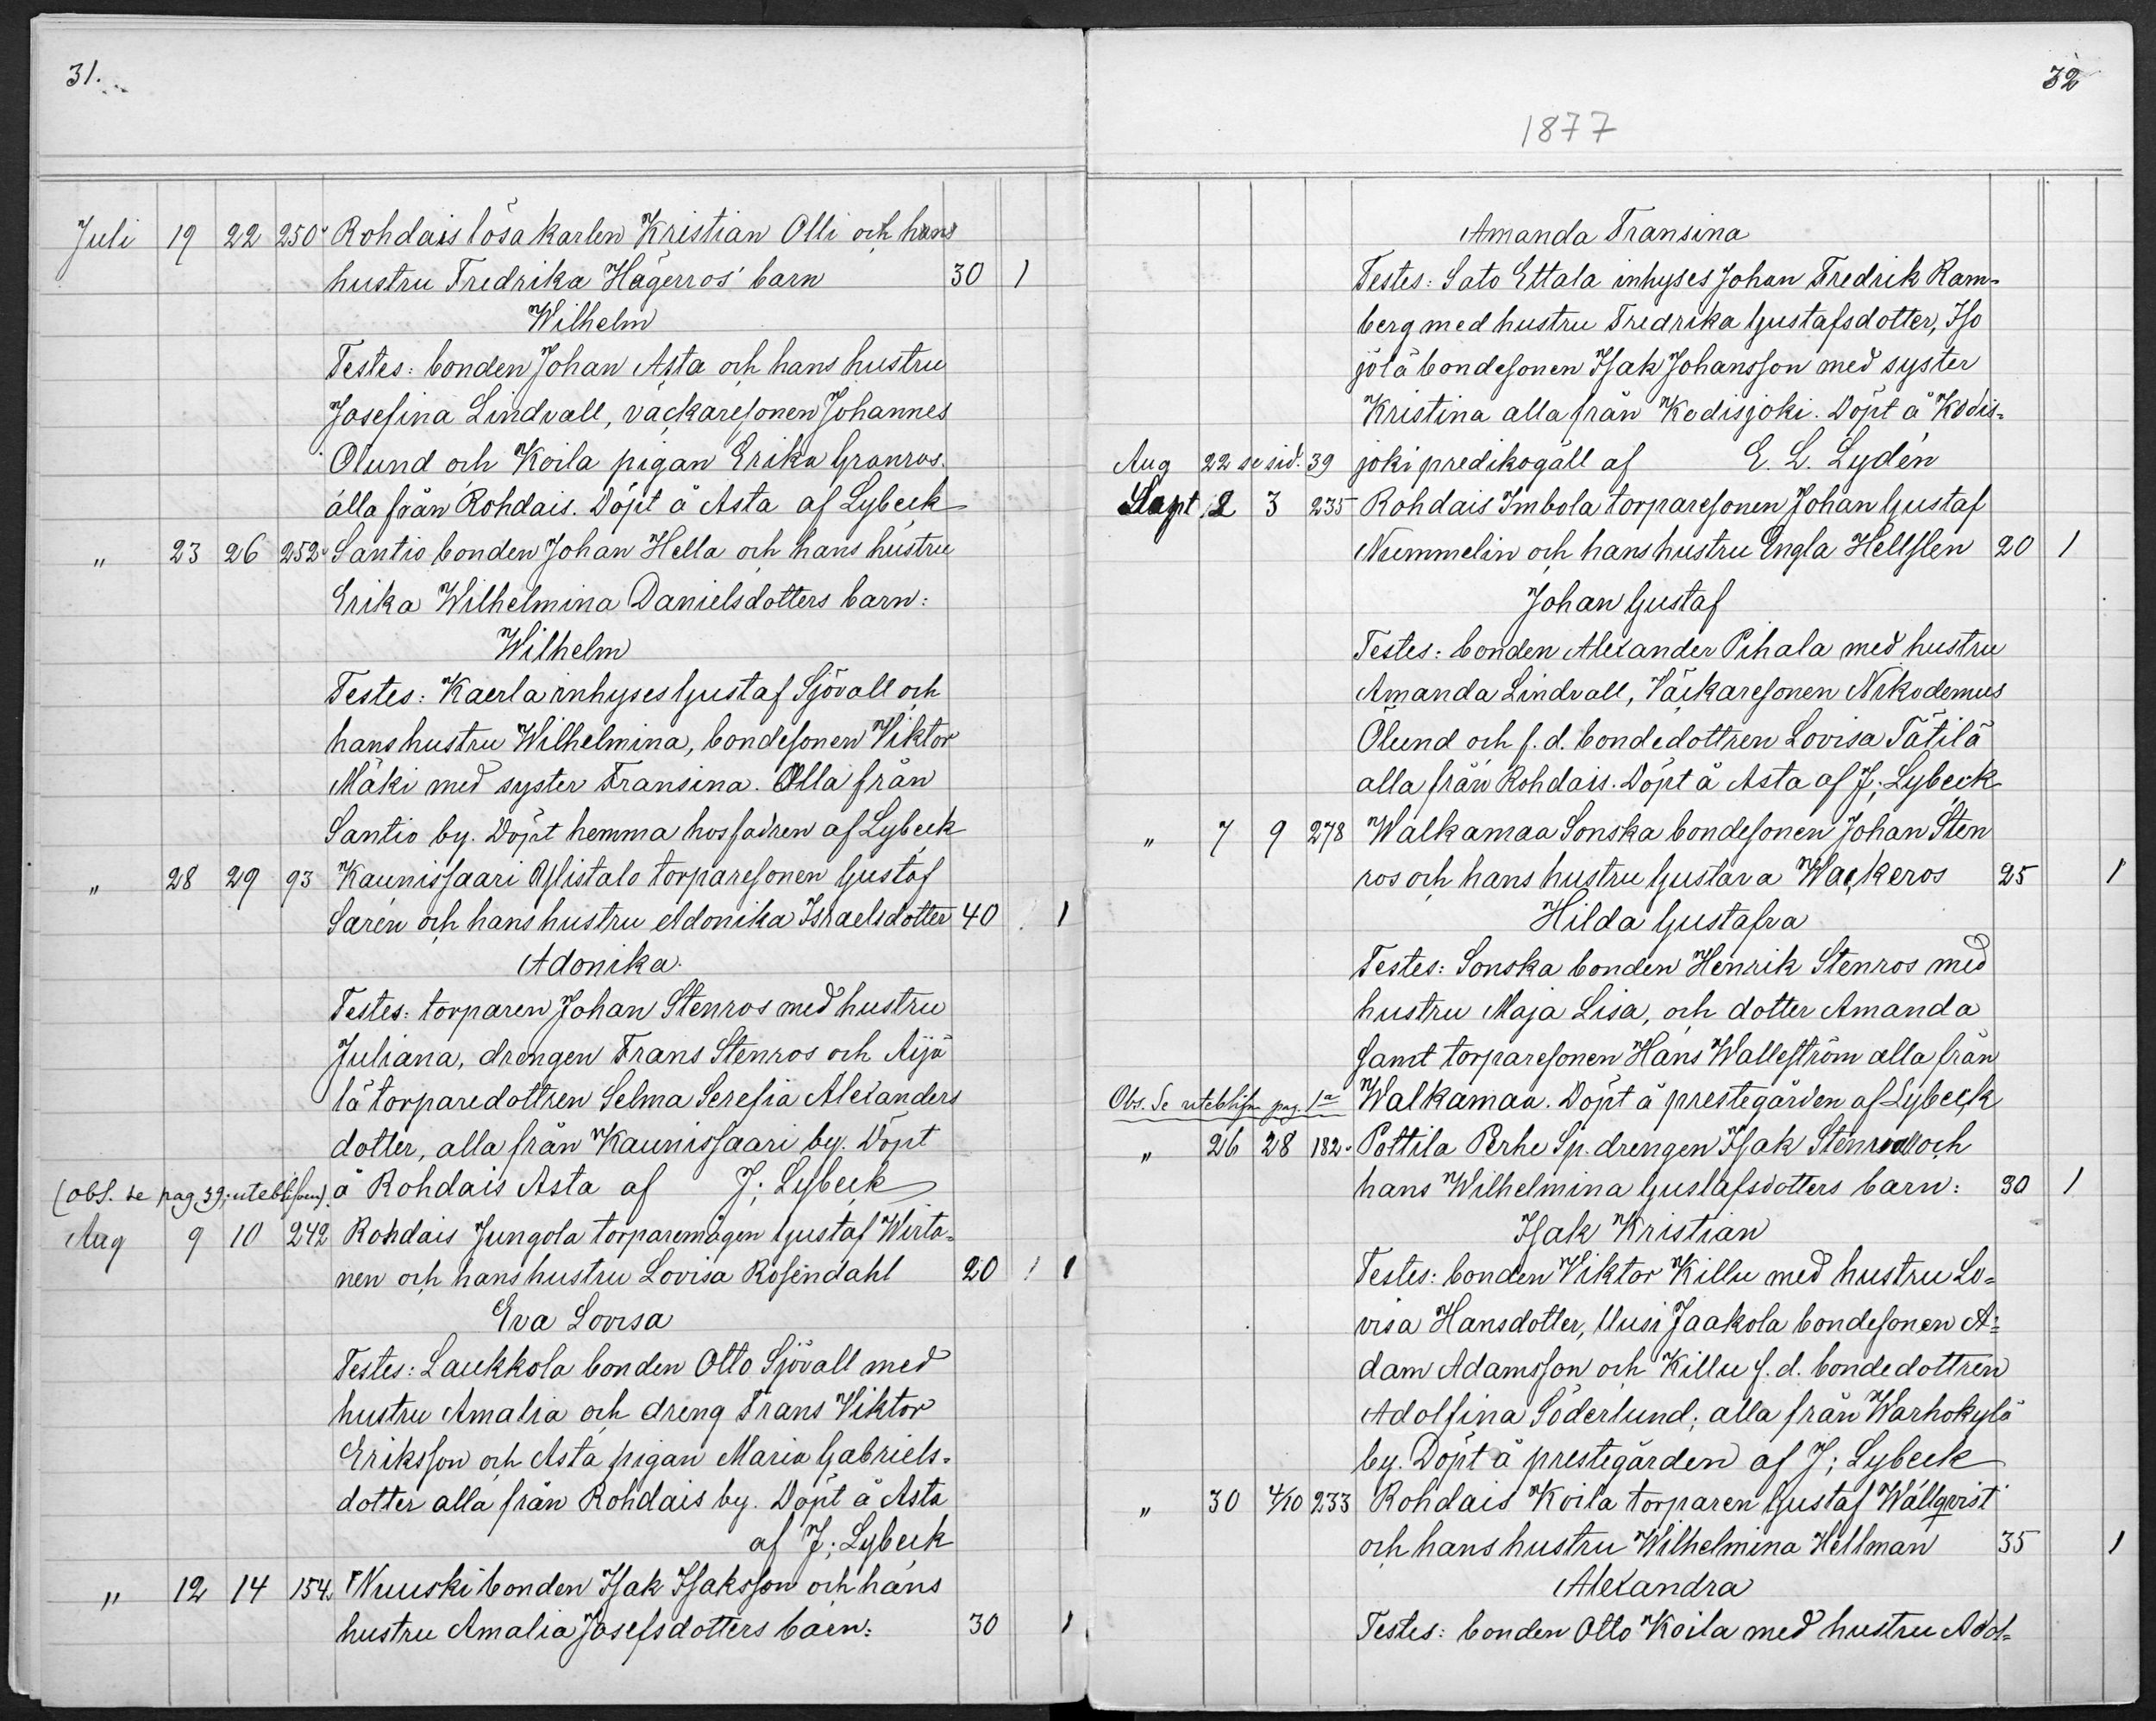 31.
Juli 19 22 250. Rohdais lösa karlen Kristian Olli och hans
hustru Fredrika Hägerros' barn 30 1
Wilhelm
Testes: bonden Johan Asta och hans hustru
Josefina Lindvall, väckaresonen Johannes
Ölund och Koila pigan Erika Granros.
alla från Rohdais. Döpt å Asta af Lybeck
" 23 26 252. Santio bonden Johan Hella och hans hustru
Erika Wilhelmina Danielsdotters barn:
Wilhelm
Testes: Kaerla inhyses Gustaf Sjövall och
hans hustru Wilhelmina, bondesonen Viktor
Mäki med syster Fransina. Alla från
Santio by. Döpt hemma hos fadren af Lybeck
" 28 29 93 Kaunissaari Ylistalo torparesonen Gustaf
Sarén och hans hustru Adonika Israelsdotter 40 1
Adonika.
Testes: torparen Johan Stenros med hustru
Juliana, drengen Frans Stenros och Äijä
lä torparedottren Selma Serefia Alexanders
dotter, alla från Kaunissaari by. Döpt
(obs. se pag 39; uteblifven). å Rohdais Asta af J; Lybeck
Aug 9 10 242 Rohdais Jungola torparemågen Gustaf Wirta-
nen och hans hustru Lovisa Rosendahl 20 1 1
Eva Lovisa
Testes: Laukkola bonden Otto Sjövall med
hustru Amalia och dreng Frans Viktor
Eriksson och Asta pigan Maria Gabriels-
dotter alla från Rohdais by. Döpt å Asta
af J; Lybeck
" 12 14 154. Nuuski bonden Isak Isaksson och hans
hustru Amalia Josefsdotters barn: 30 1
32
1877
Amanda Fransina
Testes: Sato Ettala inhyses Johan Fredrik Ram-
berg med hustru Fredrika Gustafsdotter, Iso
jölä bondesonen Isak Johansson med syster
Kristina alla från Kodisjoki. Döpt å Kodis-
Aug 22 se sid. 39 joki predikogäll af E. L. Lydén
Sept 2 3 235 Rohdais Imbola torparesonen Johan Gustaf
Nummelin och hans hustru Engla Hellsten 20 1
Johan Gustaf
Testes: bonden Alexander Pihala med hustru
Amanda Lindvall, Väckaresonen Nikodemus
Ölund och f.d. bondedottren Lovisa Tätilä
alla från Rohdais. Döpt å Asta af J; Lybeck
" 7 9 278 Walkamaa Sonska bondesonen Johan Sten
ros och hans hustru Gustava Wackeros 25 1
Hilda Gustafva
Testes: Sonska bonden Henrik Stenros med
hustru Maja Lisa, och dotter Amanda
samt torparesonen Hans Walleström alla från
Obs. Se uteblifn pag. 1a Walkamaa. Döpt å prestegården af Lybeck
" 26 28 182. Pottila Perhe Sp. drengen Isak Stenvall och
hans Wilhelmina Gustafsdotters barn: 30 1
Isak Kristian
Testes: bonden Viktor Killu med hustru Lo-
visa Hansdotter, Uusi Jaakola bondesonen A-
dam Adamsson och Killu f.d. bondedottren
Adolfina Söderlund; alla från Warhokylä
by. Döpt å prestegården af J; Lybeck
" 30 4/10 233 Rohdais Koila torparen Gustaf Wällqvist
och hans hustru Wilhelmina Hellman 35 1
Alexandra
Testes: bonden Otto Koila med hustru Adol-